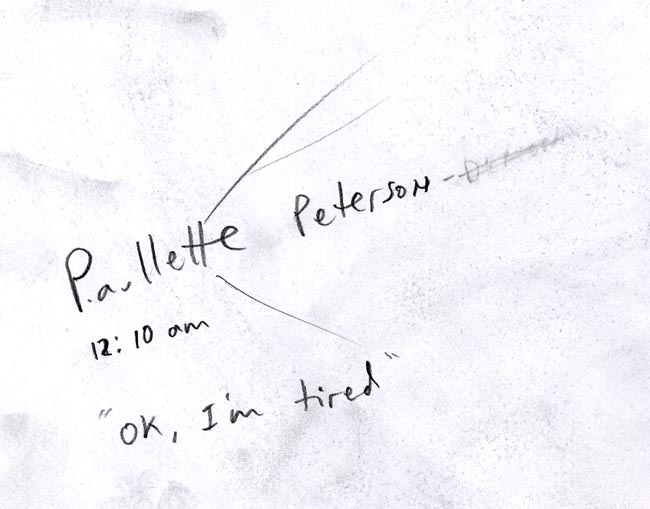 Paullette Peterson -
12:10 am
"OK, I'm tired"